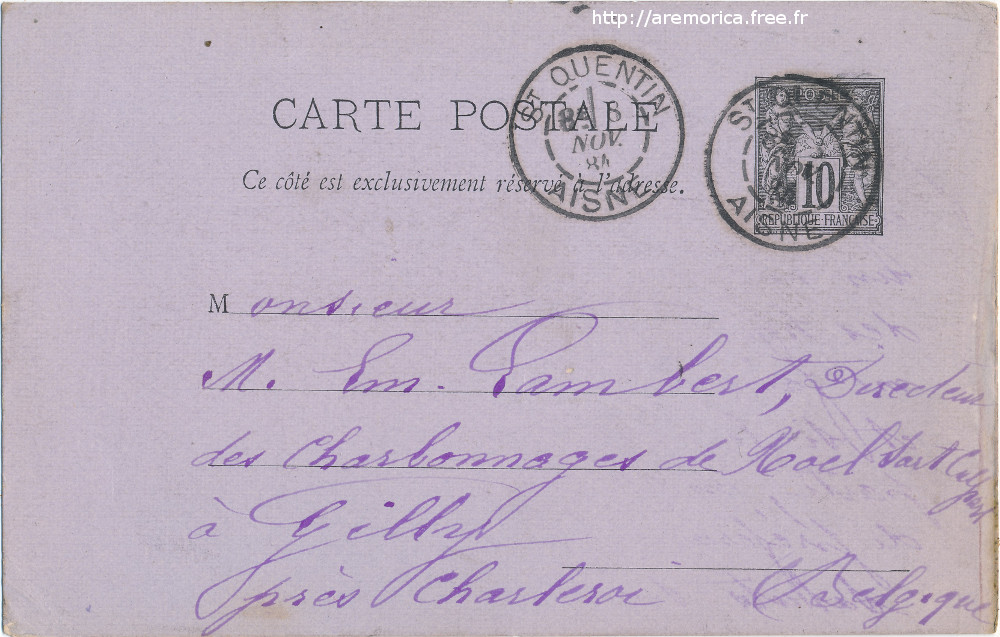 http://aremorica.free.fr
CARTE POSTALE
Ce côté est exclusivement réservé à l'adresse.
St QUENTIN
NOV.
84
AISNE
St QUENTIN
AISNE
POSTES
10
REPUBLIQUE FRANÇAISE
Monsieur
M. Em. Lambert, Directeur
des Charbonnages de Noël Sart Culpart
à Gilly
près Charleroi Belgique